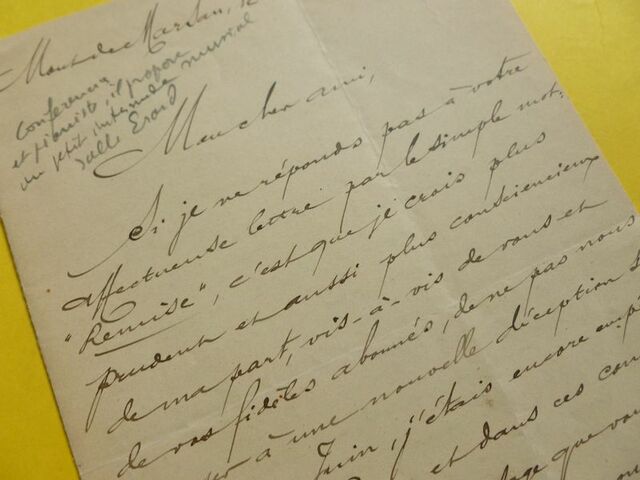 Mont de Marsan, le
Conférence
et pianiste, il propose
un petit intermède musical
salle Erard
Mon cher ami,
Si je ne réponds pas à votre
affectueuse lettre par le simple mot:
"Remise", c'est que je crois plus
prudent et aussi plus consciencieux
de ma part, vis-à-vis de vous et
de vos fidèles abonnés, de ne pas nous
à une nouvelle déception
Juin, j'étais encore
et dans ces
que vous